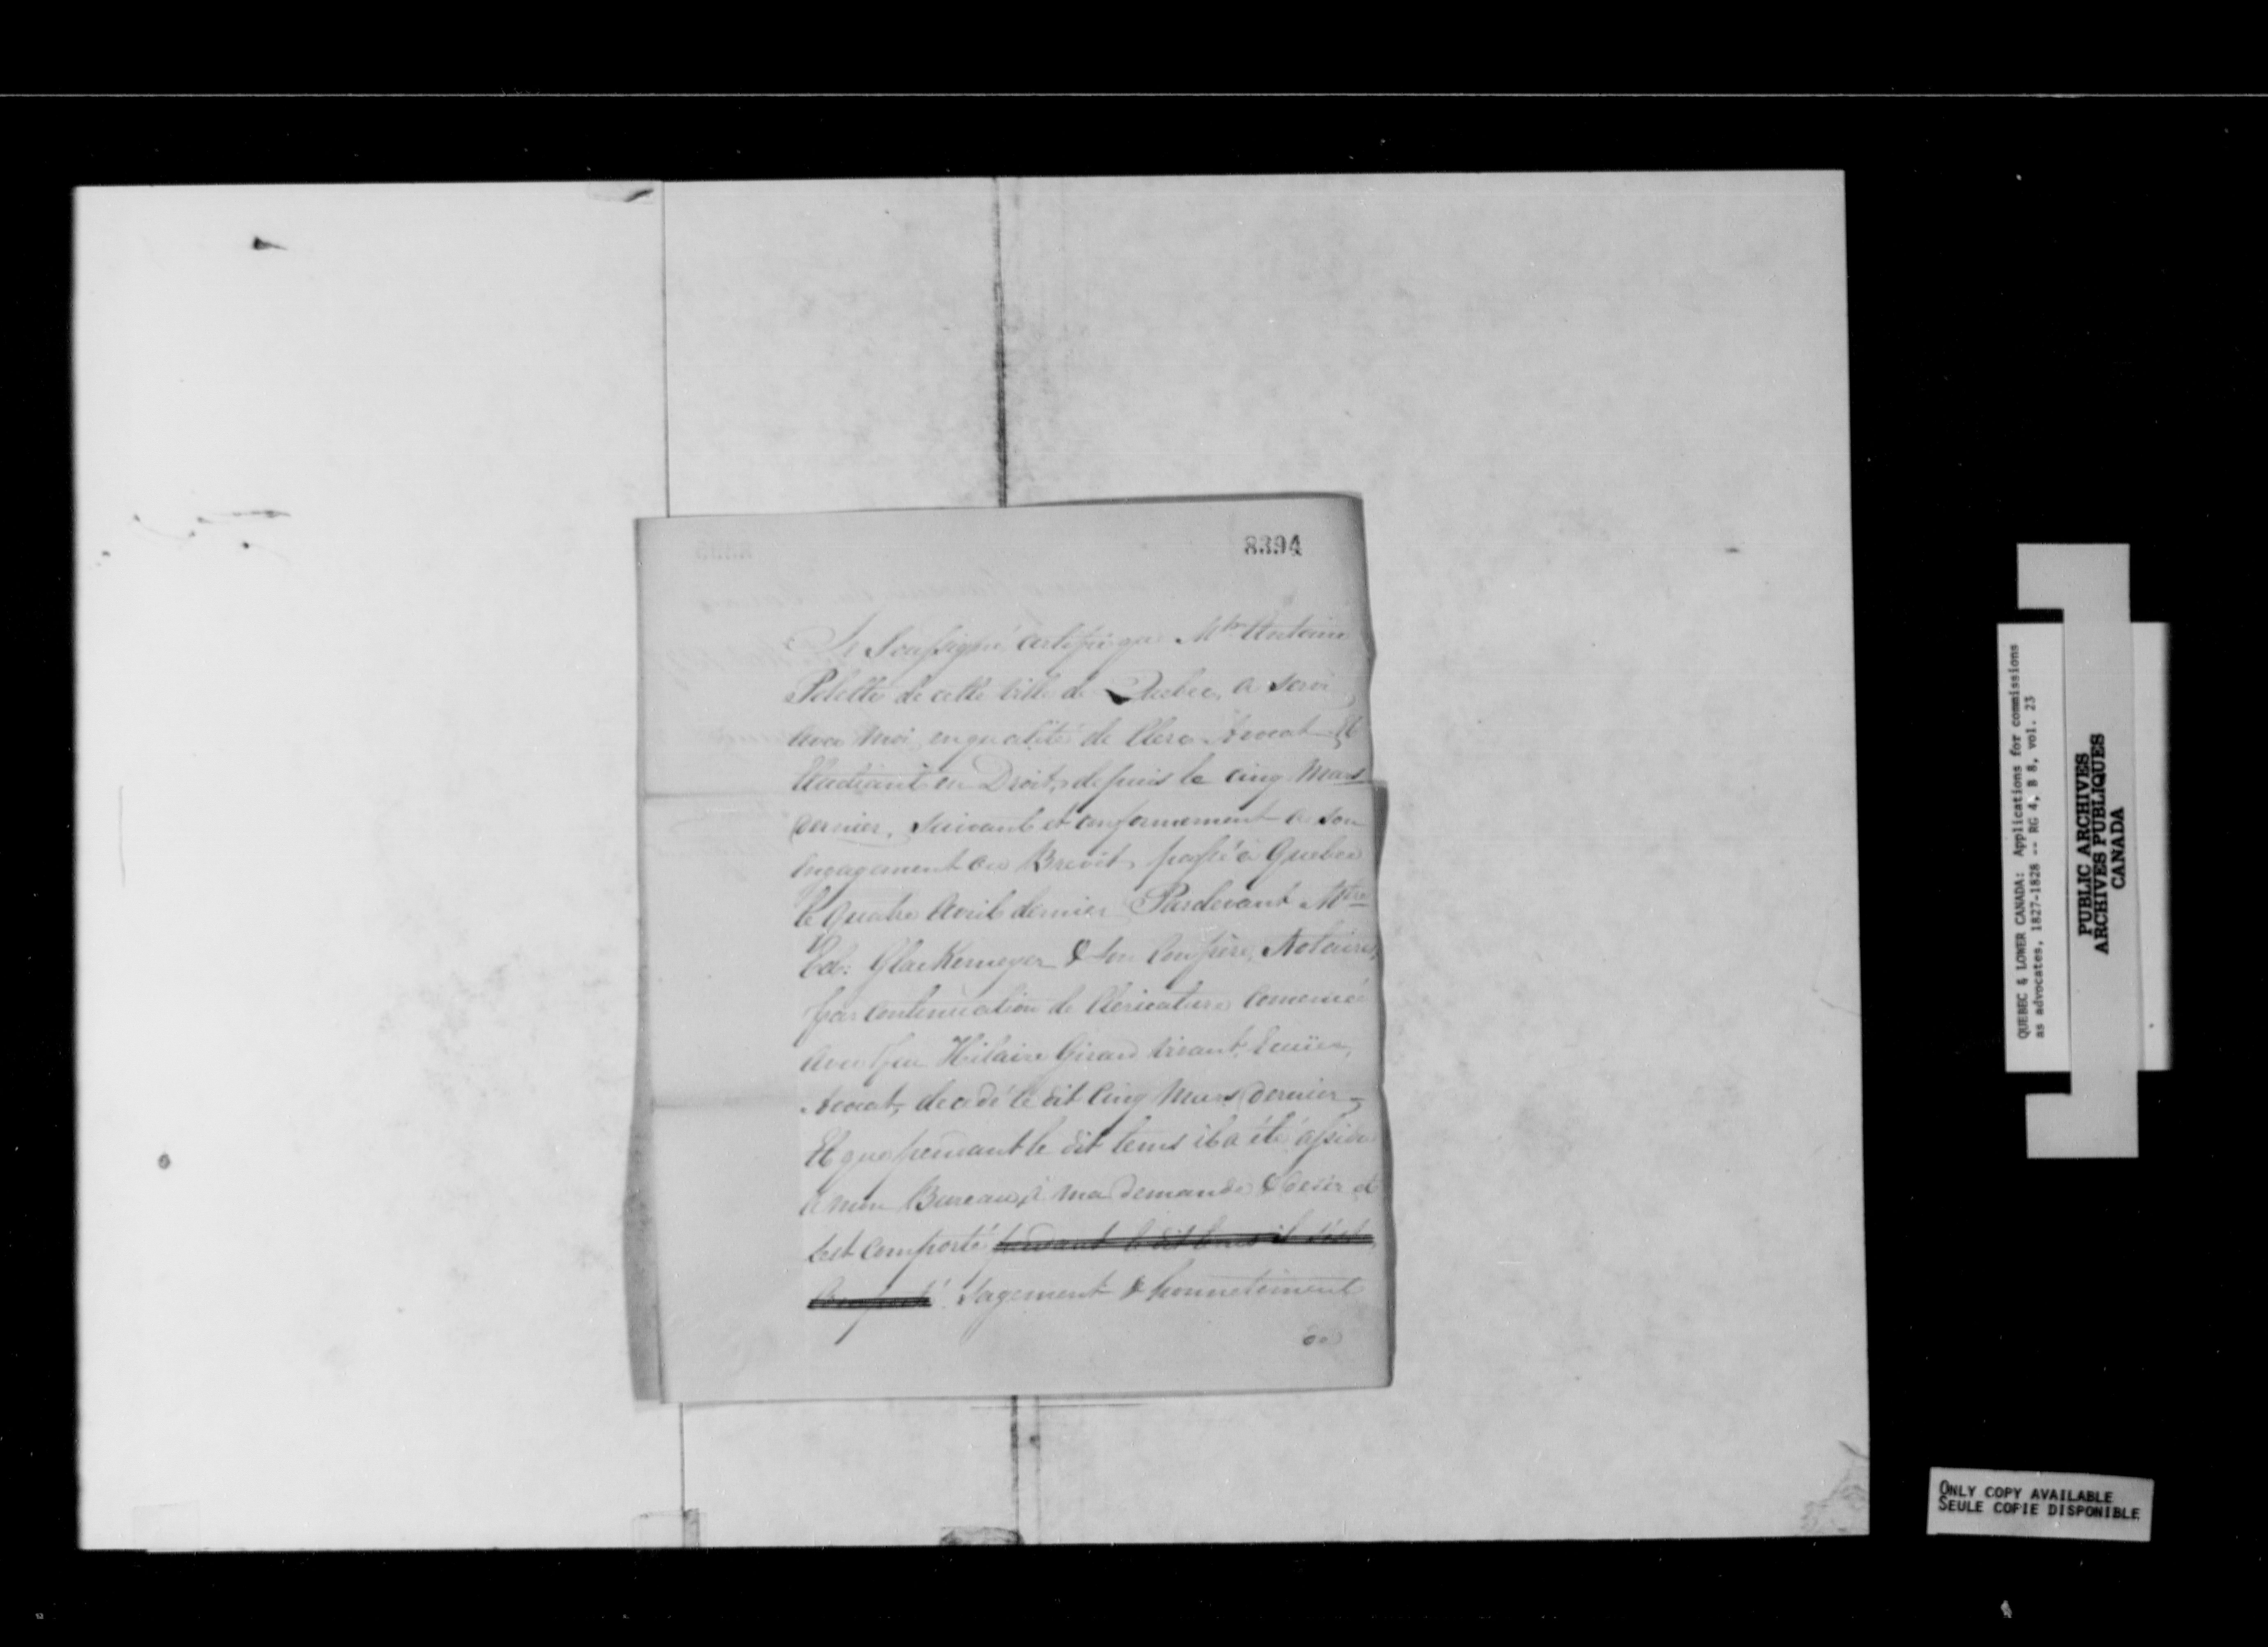 8394
Je Soussigné certifie que Mtre Antoine
Pelette de cette ville de Quebec, a servi
avec moi en qualité de Clerc Avocat Et
Etudiant en Droit, depuis le cinq Mars
dernier, suivant et conformement a son
engagement ou Brevet, passé à Quebec
le quatre Avril dernier Pardevant Mtre
Ed: Glackemeyer & son Confrère, Notaires,
par continuation de Clericature Commencée
avec feu Hilaire Girard vivant, Ecuier,
Avocat, decedé le dit Cinq Mars dernier
Et que pendant le dit tems il a été assidu
à mon Bureau, à ma demande & desir et
s'est comporté pendant le dit tems il s'est
comporté sagement & honnetement
QUEBEC & LOWER CANADA: Applications for commissions
as advocates, 1827-1828 -- RG 4, B 8, vol. 23
PUBLIC ARCHIVES
ARCHIVES PUBLIQUES
CANADA
ONLY COPY AVAILABLE
SEULE COPIE DISPONIBLE